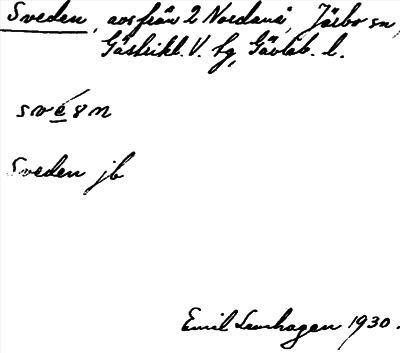 Sveden, avs från 2 Nordanå, Järbo sn,
Gästrikl. V. tg, Gävleb. l.
své8n
Sveden jb
Emil Lenhagen 1930.